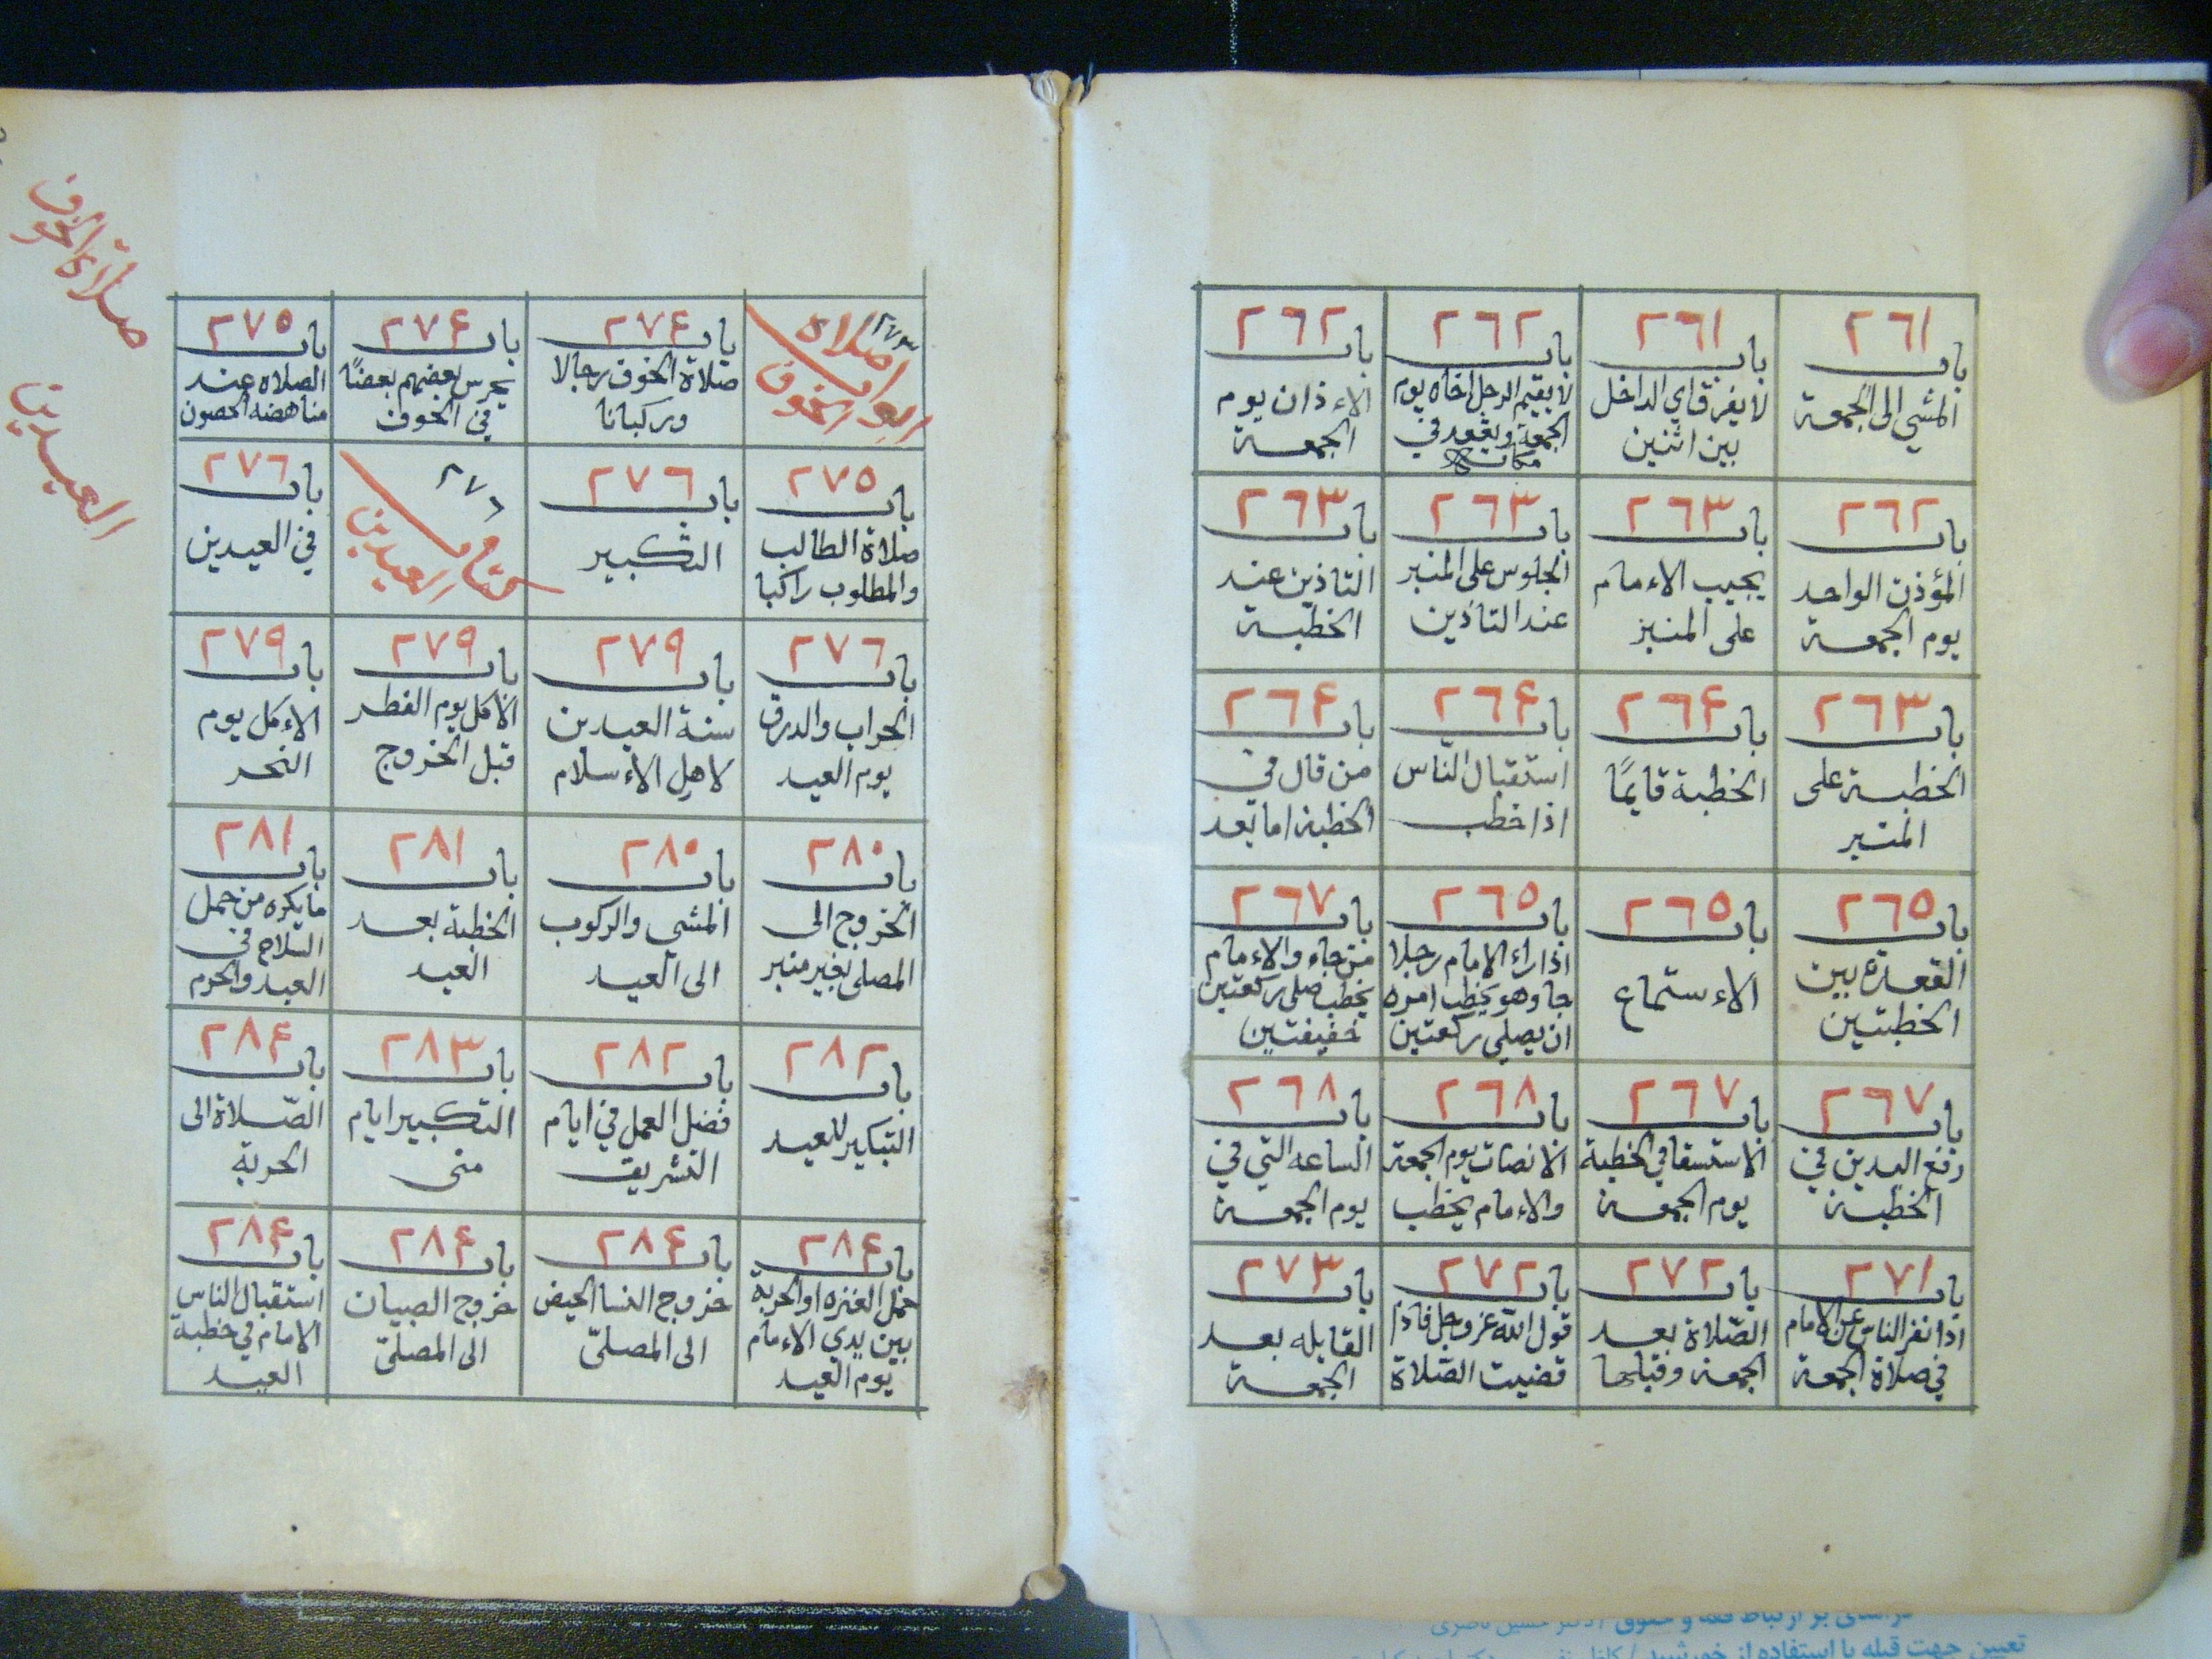 ٢٦١
باب
المشي الى الجمعة
٢٦١
باب
لا يفرق اي الداخل
بين اثنين
٢٦٢
باب
لا يقيم الرجل اخاه يوم
الجمعة ويقعد في
مكانه
٢٦٢
باب
الاءذان يوم
الجمعة
٢٦٢
باب
المؤذن الواحد
يوم الجمعة
٢٦٣
باب
يجيب الاءمام
على المنبر
٢٦٣
باب
الجلوس على المنبر
عند التاذين
٢٦٣
باب
التاذين عند
الخطبة
٢٦٣
باب
الخطبة على
المنبر
٢٦۴
باب
الخطبة قايمًا
٢٦۴
باب
استقبال النّاس
اذا خطب
٢٦۴
باب
من قال في
الخطبة اما بعد
٢٦٥
باب
القعدة بين
الخطبتين
٢٦٥
باب
الاءستماع
٢٦٥
باب
اذا راء الامام رجلا
جا وهو يخطب امره
ان يصلي ركعتين
٢٦٧
باب
من جاء والاءمام
يخطب صلى ركعتين
خفيفتين
٢٦٧
باب
رفع اليدين في
الخطبة
٢٦٧
باب
الاستسقا في الخطبة
يوم الجمعة
٢٦٨
باب
الانصات يوم الجمعة
والاءمام يخطب
٢٦٨
باب
الساعه التي في
يوم الجمعة
٢٧١
باب
اذا نفر الناس عن الامام
في صلاة الجمعة
٢٧٢
باب
الصّلاة بعد
الجمعة وقبلها
٢٧٢
باب
قول الله عز وجل فاذا
قضيت الصّلاة
٢٧٣
باب
القايله بعد
الجمعة
٢٧٣
ابواب صلاة
الخوف
٢٧۴
باب
صلاة الخوف رجالا
وركبانا
٢٧۴
باب
يحرس بعضهم بعضًا
في الخوف
٢٧٥
باب
الصلاه عند
مناهضه الحصون
٢٧٥
باب
صلاة الطالب
والمطلوب راكبا
٢٧٦
باب
التكبير
٢٧٦
كتاب العيدين
٢٧٦
باب
في العيدين
٢٧٦
باب
الحراب والدرق
يوم العيد
٢٧٩
باب
سنة العيدين
لاهل الاءسلام
٢٧٩
باب
الاكل يوم الفطر
قبل الخروج
٢٧٩
باب
الاءكل يوم
النحر
٢٨٠
باب
الخروج الى
المصلى بغير منبر
٢٨٠
باب
المشي والركوب
الى العيد
٢٨١
باب
الخطبة بعد
العيد
٢٨١
باب
ما يكره من حمل
السلاح في
العيد والحرم
٢٨٢
باب
التبكير للعيد
٢٨٢
باب
فضل العمل في ايام
التشريق
٢٨٣
باب
التكبير ايام
منى
٢٨۴
باب
الصّلاة الى
الحربة
٢٨۴
باب
حمل العنزه او الحربة
بين يدي الاءمام
يوم العيد
٢٨۴
باب
خروج النسا الحيض
الى المصلىّ
٢٨۴
باب
خروج الصبيان
الى المصلىّ
٢٨۴
باب
استقبال الناس
الامام في خطبة
العيد
صلاة الخوف
العيدين
تعيين جهت قبله با استفاده از خورشيد